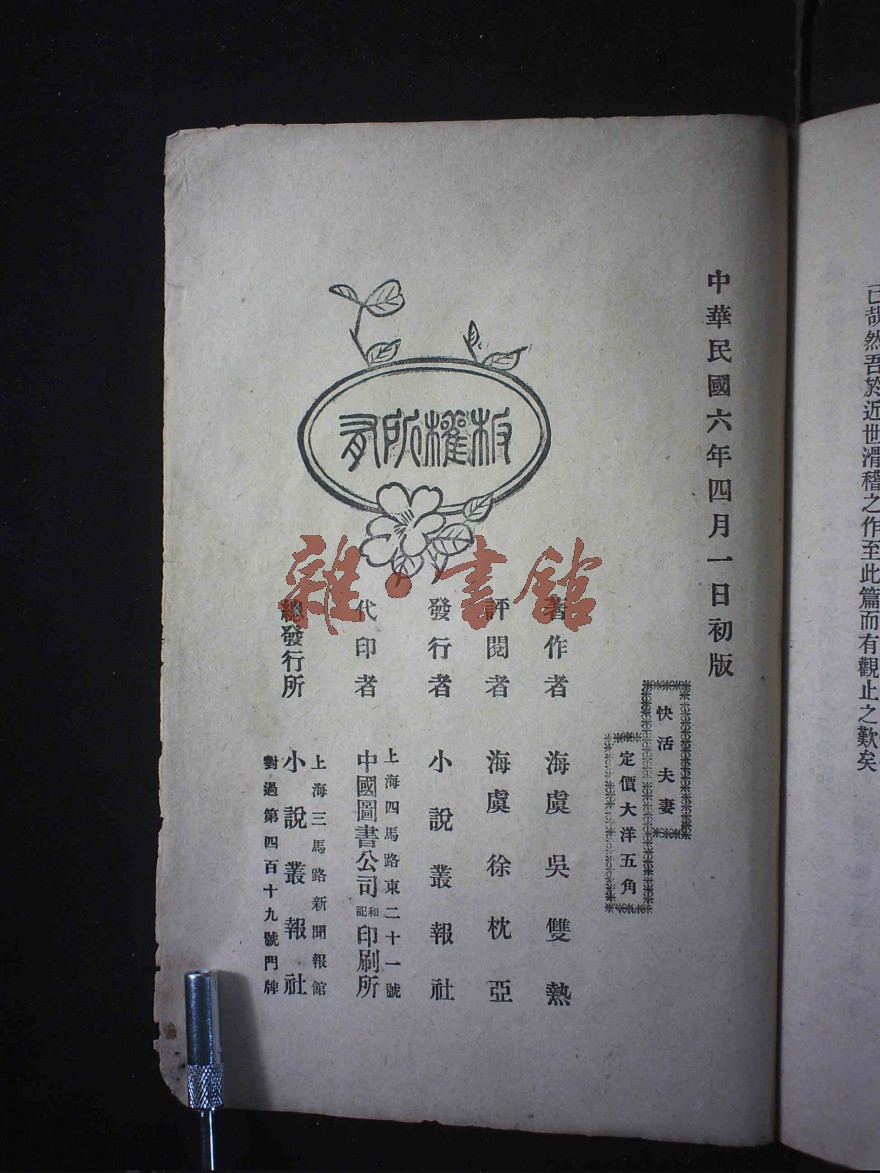 已哉然吾於近世滑稽之作至此篇而有觀止之歎矣
中華民國六年四月一日初版
快活夫妻
定價大洋五角
著作者 海虞吳雙熱
評閱者 海虞徐枕亞
發行者 小說叢報社
上海四馬路東二十一號
代印者 中國圖書公司和記印刷所
上海三馬路新聞報館
總發行所 小說叢報社
對過第四百十九號門牌
版權所有
雜·書館